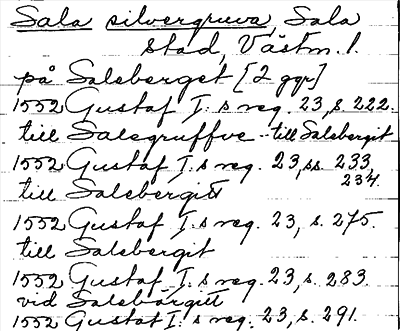 Sala silvergruva, Sala
stad, Västm. l.
på Salsberget [2 ggr]
1552 Gustaf I:s reg. 23, s. 222.
till Salsgruffve - till Salsbergit
1552 Gustaf I:s reg. 23, ss. 233,
234.
till Salsbergit
1552 Gustaf I:s reg. 23, s. 275.
till Salsbergit
1552 Gustaf I:s reg. 23, s. 283.
vid Salsbärgit
1552 Gustaf I:s reg. 23, s. 291.